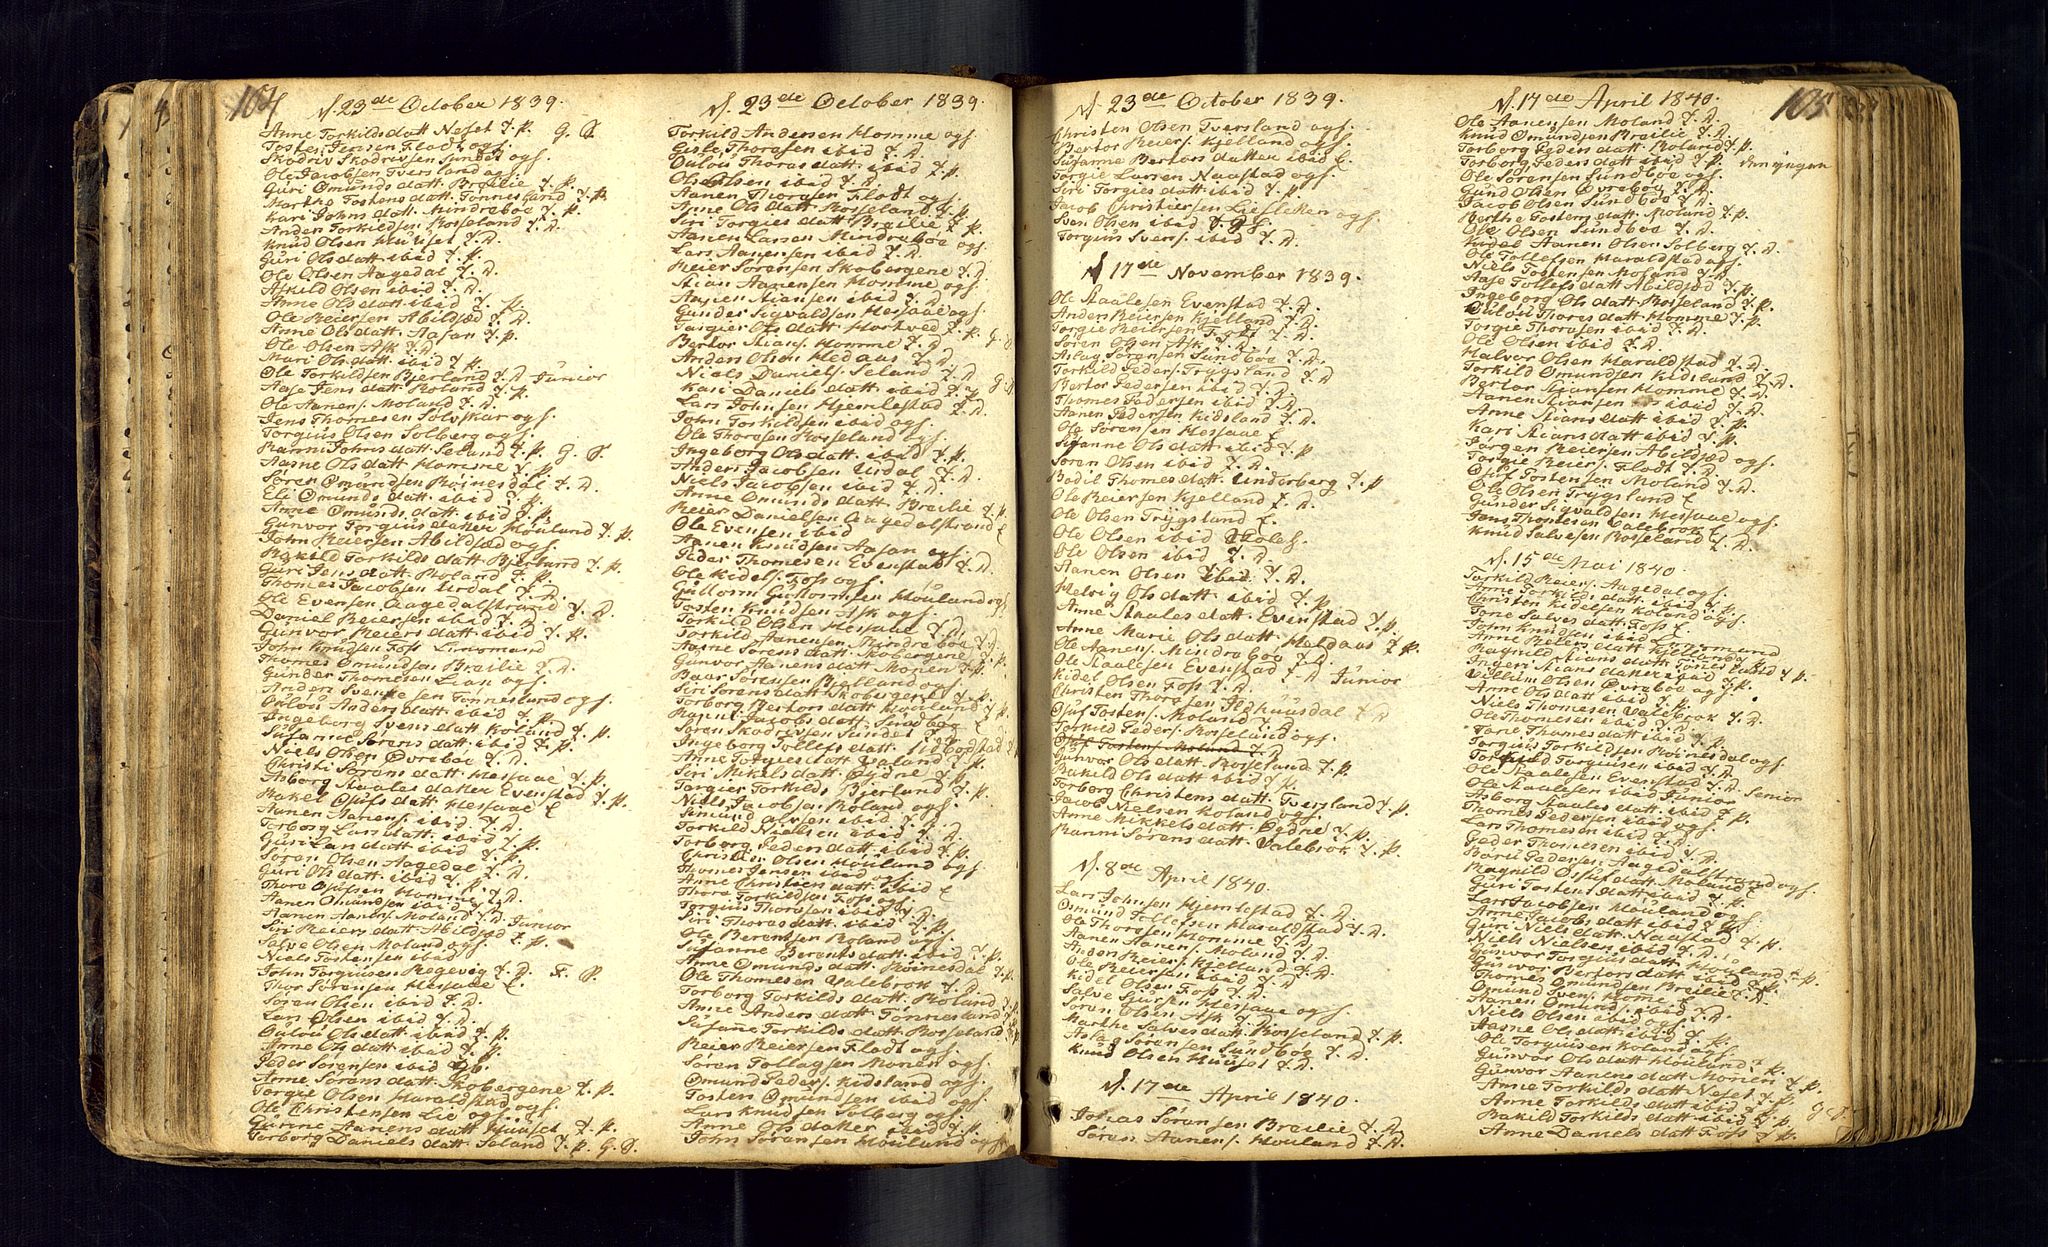 104
d. 23de October 1839.
Anne Torkilds datt Neset F. P. G. T.
Tosten Jensen Flodt ogf.
Skadriv Skadrivsen Sundet ogf.
Ole Jacobsen Tversland ogf.
Guri Omunds datt Breilie F. P.
Marthe Tostens datt Tonnesland F. P.
Kari Johns datt Mindreboe F. P.
Anden Torkildsen Rosseland F. D.
Knud Olsen Huuset F. D.
Guri Ols datt ibid F. P.
Ole Olsen Aagedal F. D.
Askild Olsen ibid F. D.
Anne Ols datt ibid F. P.
Ole Reiersen Abildsæd F. D.
Anne Ols datt Aasan F. P.
Ole Olsen Ask F. D.
Mari Ols datt ibid F. P.
Ole Torkildsen Bjerland F. D. Junior
Aase Jens datt Roland F. P.
Ole Aanens. Moland F. D.
Jens Thomesen Solvskar ogf.
Torguis Olsen Solberg ogf.
Ranni Johns datt Seland F. P. G. T.
Aasne Ols datt Homme F. P.
Søren Omundsen Røinesdal F. D.
Eli Omunds datt ibid F. P.
Anne Omunds datt ibid F. P.
Gunvor Torguis datter Houland F. P.
John Reiersen Abildsæd ogf.
Rakild Torkilds datt Bjerland F. P.
Guri Jens datt Roland F. P.
Thomes Jacobsen Urdal F. D.
Ole Evensen Aagedalstrand F. D.
Daniel Reiersen ibid F. D.
Gunvor Reiers datt ibid F. P.
John Knudsen Foss Linomand
Thomes Omundsen Breilie F. D.
Gunder Thomesen Lian ogf.
Anders Svenkesen Tonnesland ogf.
Oulou Anders datt ibid F. P.
Ingeborg Svens datt Roland F. P.
Susanne Sørens datt ibid F. P.
Niels Olsen Øvreboe F. D.
Christi Sørens datt Hessaae F. P.
Asborg Staales datter Evenstad F. P.
Rakel Osufs datt Hessaae E
Aanen Aanens. ibid F. D.
Torborg Lars datt ibid F. P.
Guri Lars datt ibid F. P.
Søren Olsen Aagedal F. D.
Guri Ols datt ibid F. P.
Thore Osufsen Homme F. D.
Aanen Omundsen ibid F. D.
Aanen Aanens. Moland F. D. Junior
Siri Reiers datt Abildsæd F. P.
Salve Olsen Moland ogf.
Niels Tostensen ibid
John Torguisen Regevig F. D. F. P.
Thor Sørensen Hessaae E.
Søren Olsen ibid F. D.
Lars Olsen ibid F. D.
Oulou Ols datt ibid F. P.
Anne Ols datt ibid F. P.
Peder Sørensen ibid
Anne Sørens datt Skobergene F. P.
Torgie Olsen Haraldstad ogf.
Ole Christensen Lie ogf.
Gunne Aanens datt Huuset F. P.
Torborg Daniels datt Seland F. P. G. D.
d. 23de October 1839.
Torkild Andersen Homme ogf.
Eisle Thorasen ibid F. D.
Oulou Thoras datt ibid F. P.
Ols Olsen ibid F. D.
Aanen Thorasen Flodt ogf.
Anne Ols datt Rosseland F. P.
Siri Torgies datt Breilie F. P.
Aanen Larsen Mindreboe ogf.
Lars Aanensen ibid F. D.
Reier Sørensen Skobergene F. D.
Stian Aanensen Homme ogf.
Aanen Stiansen ibid F. D.
Gunder Sigvaldsen Hessaae ogf.
Torgier Ols datt Hortved F. P.
Bertor Stians. Homme F. D.
Anders Olsen Hedaas F. D.
Niels Daniels. Seland F. D.
Kari Daniels datt ibid F. P. G. D.
Lars Johnsen Hjemlestad F. D.
John Torkildsen ibid ogf.
Ole Thorasen Rosseland ogf.
Ingeborg Ols datt ibid F. P.
Anders Jacobsen Urdal F. D.
Niels Jacobsen ibid F. D.
Anne Omunds datt Breilie F. P.
Reier Danielsen Aagedalstrand E
Ole Evensen ibid
Aanen Knudsen Aasan ogf.
Peder Thomesen Evenstad F. D.
Ole Kidels. Foss ogf.
Gullorm Gullormsen Houland ogf.
Tosten Knudsen Ask ogf.
Torkild Olsen Hessaae F. D.
Torkild Aanensen Mindreboe F. D.
Aasne Sørens datt Skobergene F. P.
Gunvor Aanens datt Monen F. P.
Baar Sørensen Bjelland ogf.
Siri Sørens datt Skobergene F. P.
Torborg Bertors datt Houland F. P.
Ranni Jacobs datt. Sundboe E
Søren Skadrivsen Sundet F. D.
Ingeborg Tollefs datt Lidbodstad F. P.
Anne Torgies datt Valand F. P.
Siri Mikels datt Øydne F. P.
Torgier Torkilds. Bjerland F. P.
Niels Jacobsen Roland ogf.
Simund Salvesen ibid F. D.
Torkild Nielsen ibid F. D.
Torborg Peders datt ibid F. P.
Christen Olsen Houland ogf.
Thomes Jensen ibid ogf.
Anne Christens datt ibid E
Thore Torkildsen Foss ogf.
Torguis Thorasen ibid F. D.
Siri Thoras datt ibid F. P.
Ole Berentsen Roland ogf.
Susanne Berents datt ibid F. P.
Anne Omunds datt Røinesdal F. P.
Ole Thomesen Valebrok F. D.
Torborg Torkilds datt Roland F. P.
Anne Anders datt Tonnesland F. P.
Susanne Torkilds datt Rosseland F. P.
Reier Reiersen Flodt ogf.
Søren Tollagsen Monen ogf.
Omund Peders. Kidsland ogf.
Tosten Omundsen ibid F. D.
Lars Knudsen Solberg ogf.
Anne Ols datter ibid F. P.
John Sørensen Houland ogf.
d. 23de October 1839.
Christen Olsen Tversland ogf.
Bertor Reiers. Kjelland ogf.
Susanne Bertors datter ibid E
Torgie Larsen Naastad ogf.
Siri Torgies datt ibid F. P.
Jacob Christensen Liesleken ogf.
Sven Olsen ibid F. D.
Torguis Svens. ibid F. D.
d 17de November 1839.
Ole Staalesen Evenstad F. D.
Anden Reiersen Kjelland F. D.
Torgie Reiersen Foss F. D.
Søren Olsen Ask F. D.
Aslag Sørensen Sundboe F. D.
Torkild Peders. Trygsland F. D.
Bertor Pedersen ibid F. D.
Thomes Pedersen ibid F. D.
Aanen Pedersen Kidsland F. D.
Ole Sørensen Hessaae E
Susanne Ols datt ibid F. P.
Søren Olsen ibid F. D.
Bodil Thomes datt. Underberg F. P
Ole Reiersen Kjelland F. D.
Ole Olsen Trygsland E.
Ole Olsen ibid
Ole Olsen ibid F. D.
Aanen Olsen ibid F. D.
Helvig Ols datt ibid F. P.
Anne Staales datt. Evenstad F. P.
Anne Marie Ols datt Hetdaas F. P.
Ole Aanens. Mindreboe F. D.
Ole Staalesen Evenstad F. D. Junior
Kidel Olsen Foss F. D.
Christen Thorasen Ildhuusdal F. D
Osuf Tostens. Moland F. D.
Torkild Peders. Rosseland ogf.
Osuf Tostens. Moland F. D.
Gunvor Ols datt Rosseland F. P.
Rakild Ols datt ibid F. P.
Torborg Christens datt Tversland F. P.
Jacob Nielsen Roland ogf.
Anne Mikkels datt Øydne F. P.
Ranni Sørens datt. Valebrok F. P.
d. 8de April 1840.
Lars Johnsen Hjemlestad F. D.
Osmund Tollefsen Haraldstad F. D.
Ole Thorasen Homme F. D.
Aanen Aanens. Moland F. D.
Anden Reiers. Kjelland F. D.
Ole Reiersen ibid F. D.
Kidel Olsen Foss F. D.
Salve Sjursen Hessaae ogf.
Søren Olsen Ask F. D.
Marthe Salves datt Rosseland F. P.
Aslag Sørensen Sundboe F. D.
Knud Olsen Huuset F. D.
d. 17de April 1840.
Tobias Sørensen Breilie F. D.
Søren Aanens. Houland F. D.
105
d. 17de April 1840.
Ole Aanensen Moland F. D.
Knud Omundsen Breilie F. D.
Torborg Peders datt. Roland F. P.
Torborg Peders datt ibid F. P. den yngre
Ole Sørensen Sundboe ogf.
Gund Olsen Øvreboe F. D.
Jacob Olsen Sundboe F. D.
Berthe Tostens datt. Moland F. P.
Ole Olsen Sundboe F. D.
Kidel Aanen Olsen Solberg F. D.
Ole Tollefsen Haraldstad ogf.
Niels Tostensen Moland F. D.
Aase Tollefs datt Abildsæd F. P.
Ingeborg Ols datt Rosseland F. P.
Oulou Thoras datt Homme F. P.
Torgie Thorasen ibid F. D.
Ole Olsen ibid F. D.
Halvor Olsen Haraldstad F. D.
Torkild Omundsen Kidsland F. D.
Bertor Stiansen Homme F. D.
Aanen Stiansen ibid F. D.
Anne Stians datt ibid F. P.
Kari Stians datt ibid F. P.
Jørgen Reiersen Abildsæd ogf.
Torgie Reiers. Flodt F. D.
Osuf Tostensen Moland F. D.
Ole Olsen Trygsland E
Gunder Sigvaldsen Hessaae ogf.
Jens Thomesen Valebrok E
Knud Salvesen Rosseland F. D.
d. 15de Mai 1840.
Torkild Reiers. Aagedal ogf.
Anne Torkilds datt. ibid F. P.
Christen Kidelsen Roland ogf.
Tone Salves datt Foss E
John Knudsen ibid Linomand
Anne Reiers datt Kjelland F. P.
Ragnild Stians datt Tonnesland F. P.
Ingeri Stians datter ibid F. P.
Villum Olsen Øvreboe ogf.
Anne Ols datt ibid F. P.
Niels Thomesen Valebrok F. D.
Ole Thomesen ibid F. D.
Tone Thomes datt ibid F. P.
Torguis Torkildsen Røinesdal ogf.
Torkild Torguisen ibid F. D.
Ole Staalesen Evenstad F. D. Senior
Ole Staalesen ibid Junior
Asborg Staales datt ibid F. P.
Thomes Pedersen ibid ogf.
Lars Thomesen ibid F. D.
Peder Thomesen ibid F. D.
Baru Pedersen Aagedalstrand ogf.
Ragnild Ossufs datt. Moland E
Guri Tostens datt ibid F. P.
Lars Jacobsen Houland ogf.
Anne Jacobs datt ibid F. P.
Guri Niels datt Naastad F. P.
Niels Nielsen ibid F. D.
Gunvor Torguis datt Houland F. P.
Gunvor Bertors datt ibid F. P.
Thomes Omundsen Breilie F. D.
Omund Svens. Home E
Aanen Omundsen ibid F. D.
Niels Olsen ibid F. D.
Aasne Ols datt ibid F. P.
Ole Torguisen Roland ogf.
Gunvor Ols datt Houland F. P.
Gunvor Aanens datt Monen F. P.
Anne Torkilds datt Neset F. P.
Anne Torkilds datt ibid F. P. G. D.
Rakild Torkilds datt ibid F. P.
Anne Daniels datt Foss F. P.